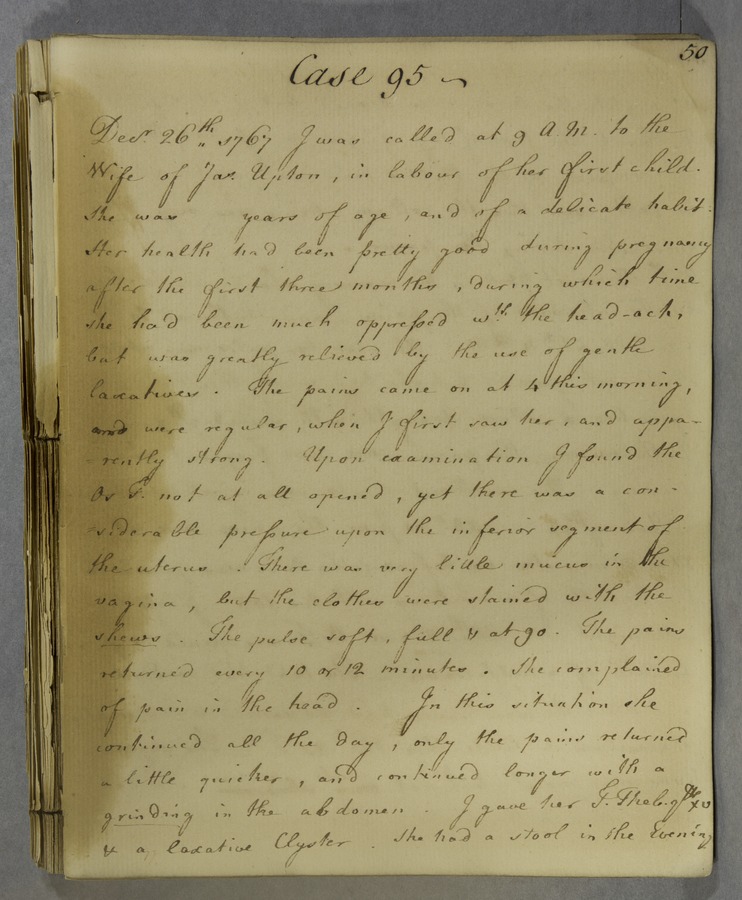 50
Case 95
Decr. 26th 1767 I was called at 9 A.M. to the
Wife of Jas. Upton, in labour of her first child.
She was years of age, and of a delicate habit.
Her health had been pretty good during pregnancy
after the first three months, during which time
she had been much oppressed wth. the head-ach,
but was greatly relieved by the use of gentle
laxatives. The pains came on at 4 this morning,
and were regular, when I first saw her, and appa-
-rently strong. Upon examination I found the
Os T. not at all opened, yet there was a con-
-siderable pressure upon the inferior segment of
the uterus. There was very little mucus in the
vagina, but the clothes were stained with the
shews. The pulse soft, full & at 90. The pains
returned every 10 or 12 minutes. She complained
of pain in the head. In this situation she
continued all the day, only the pains returned
a little quicker, and continued longer with a
grinding in the abdomen I gave her T. Theb. gtt xv
& a laxative Clyster. She had a stool in the Evening